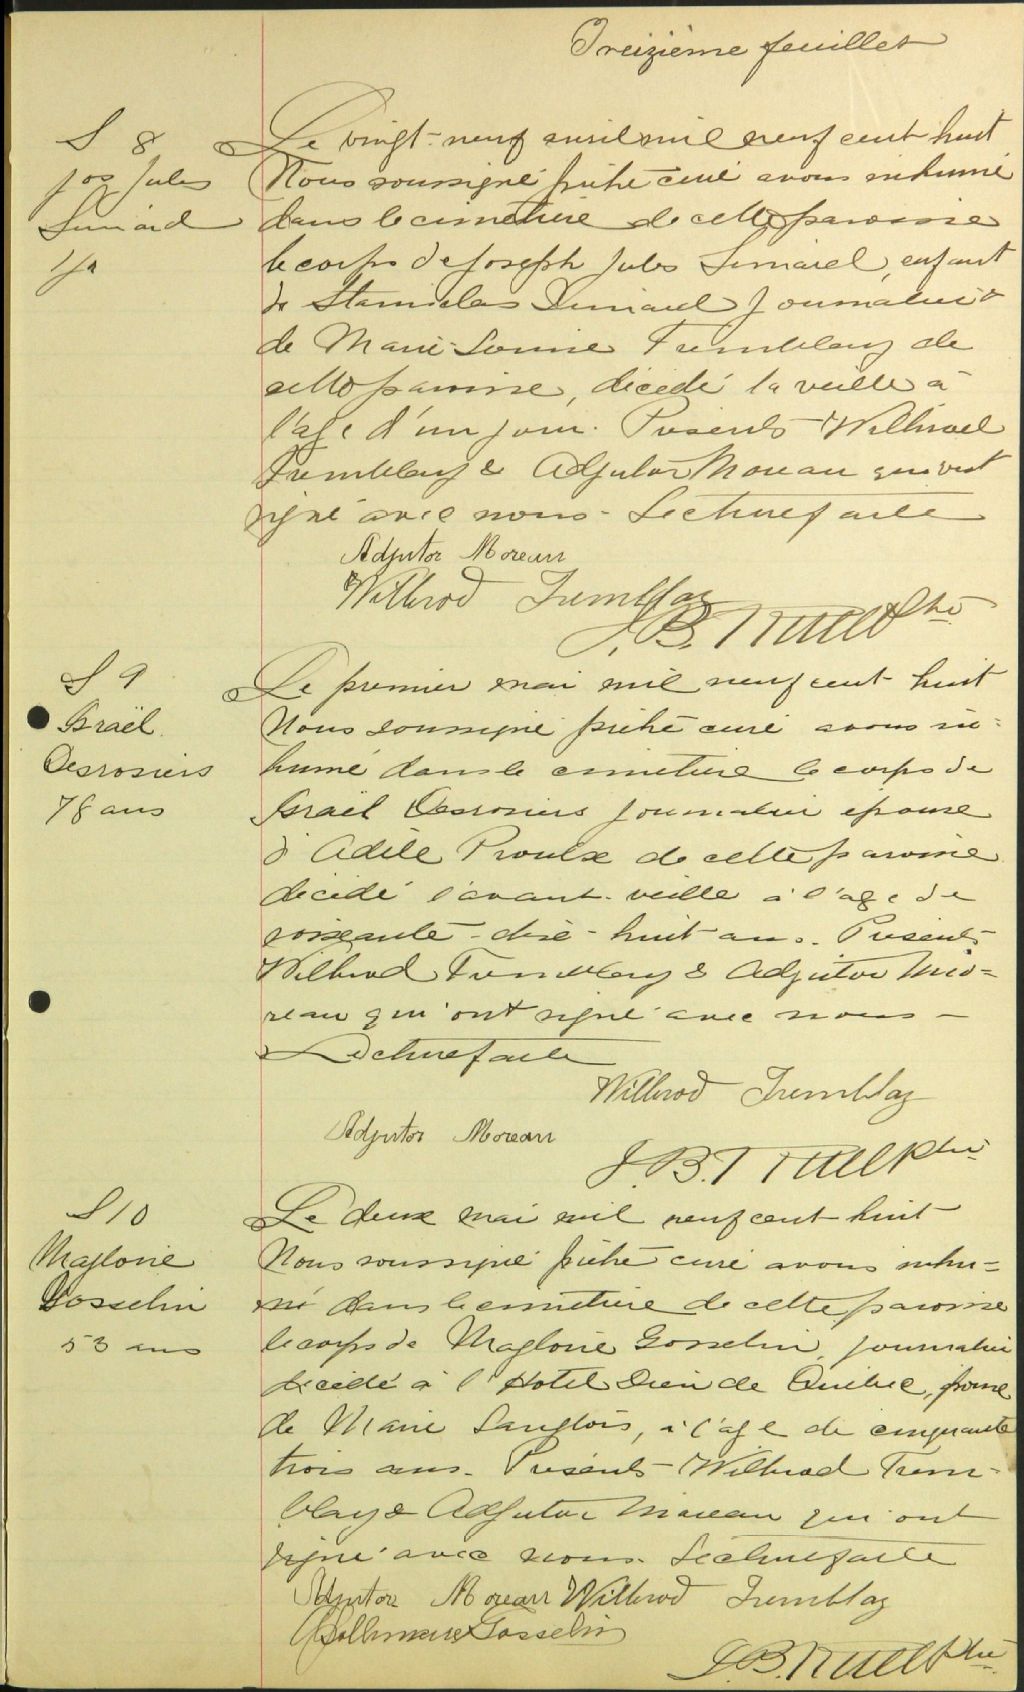 Treizième feuillet
S 8
Jos Jules
Simard
1 j
Le vingt-neuf avril mil neuf cent huit
Nous soussigné prêtre curé avons inhumé
dans le cimetière de cette paroisse
le corps de Joseph Jules Simard, enfant
de Stanislas Simard journalier &
de Marie-Louise Tremblay de
cette paroisse, décédé la veille à
l'age d'un jour. Présents Wilbrod
Tremblay & Adjutor Moreau qui ont
signé avec nous. Lecture faite
Adjutor Moreau
Wilbrod Tremblay
J. B. Ruel Ptre
S 9
Israël
Desrosiers
78 ans
Le premier mai mil neuf cent huit
Nous soussigné prêtre curé avons in-
humé dans le cimetière le corps de
Israël Desrosiers journalier épouse
d'Adèle Proulx de cette paroisse
décédé l'avant-veille à l'age de
soixante-dix-huit ans. Présents
Wilbrod Tremblay & Adjutor Mo-
reau qui ont signé avec nous -
Lecture faite
Wilbrod Tremblay
Adjutor Moreau
J. B. Ruel Ptre
S 10
Magloire
Gosselin
53 ans
Le deux mai mil neuf cent huit
Nous soussigné prêtre curé avons inhu-
mé dans le cimetière de cette paroisse
le corps de Magloire Gosselin, journalier
décédé à l'Hotel Dieu de Québec,
de Marie Langlois, à l'age de cinquante
trois ans. Présents Wilbrod Trem-
blay & Adjutor Moreau qui ont
signé avec nous. Lecture faite
Adjutor Moreau Wilbrod Tremblay
Gosselin
J. B. Ruel Ptre